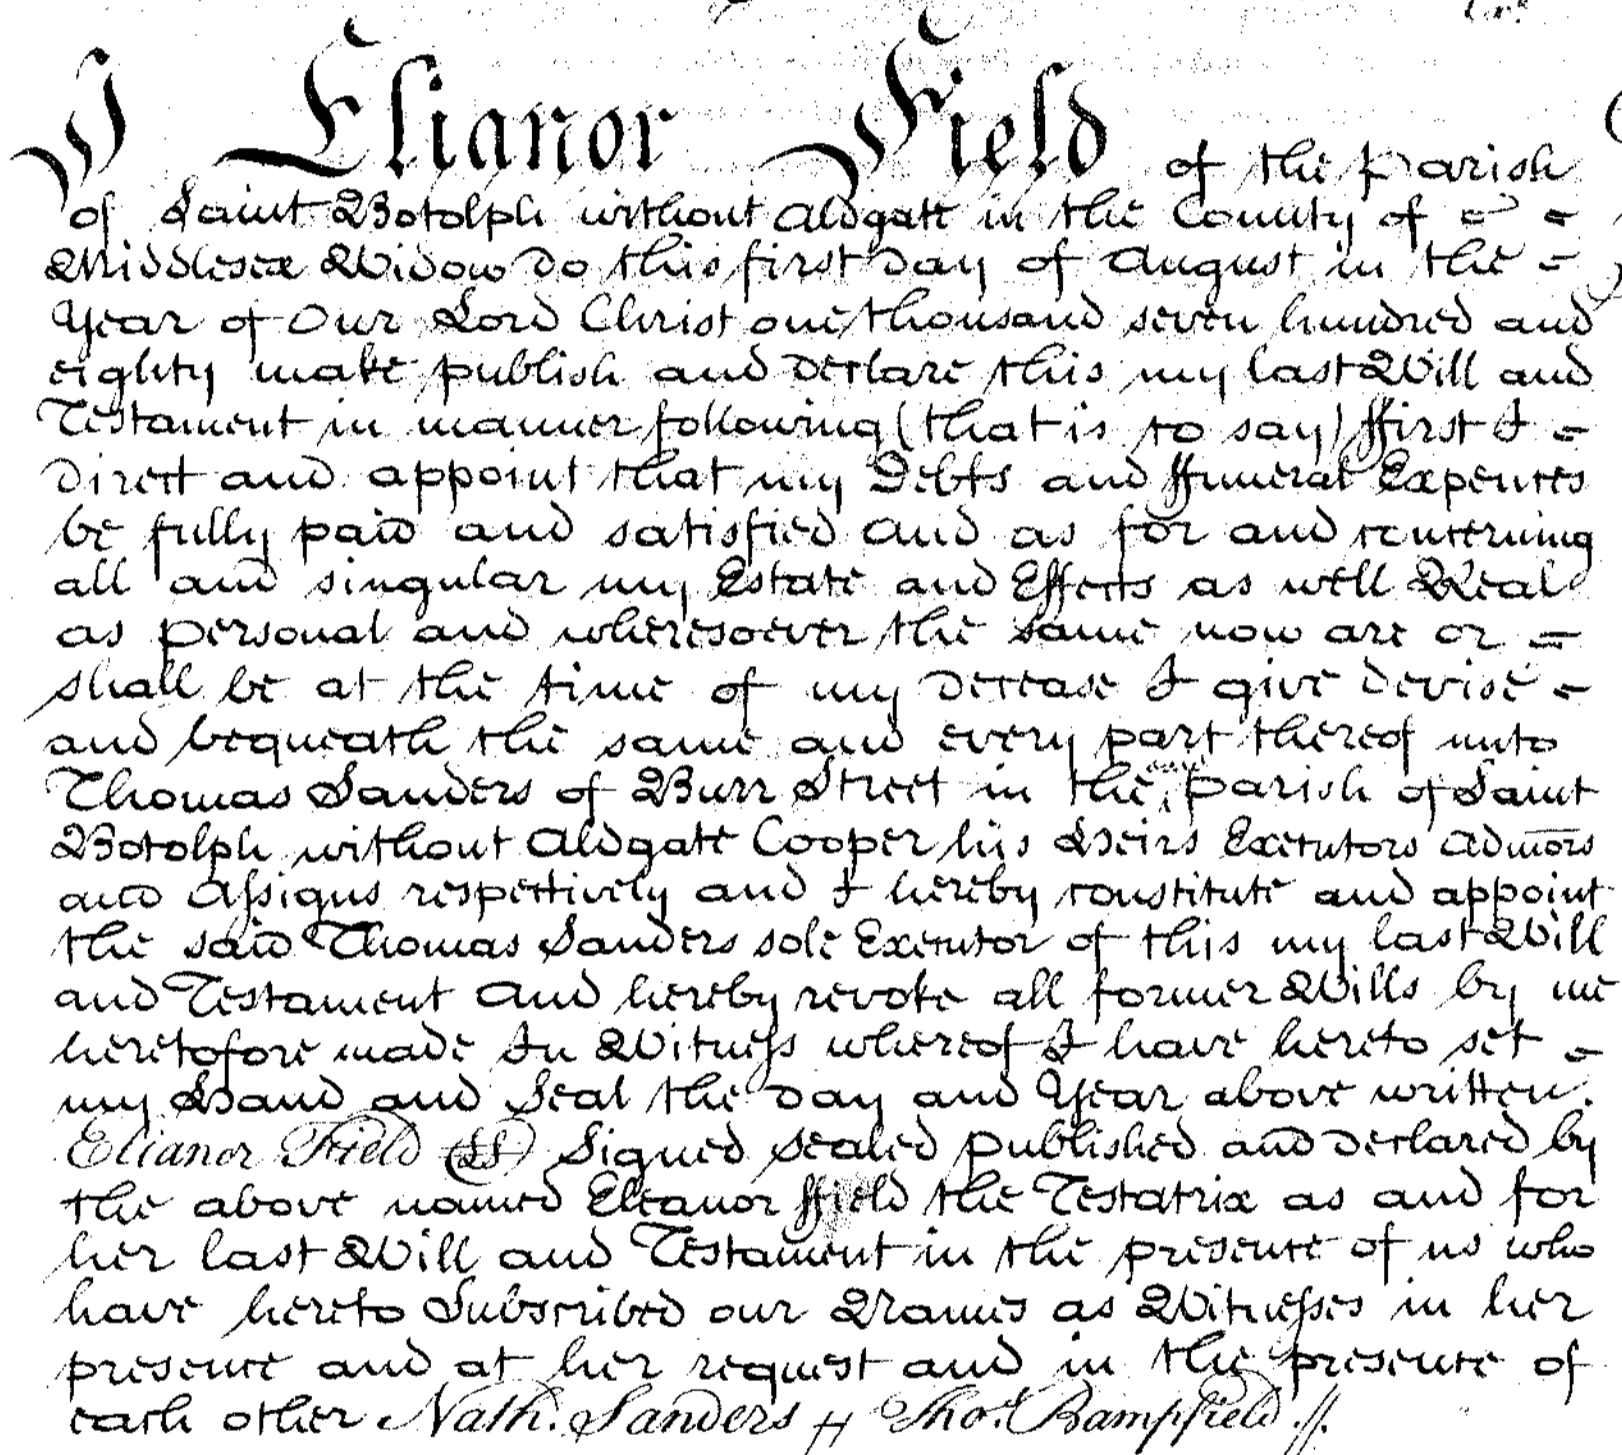 I Elianor Field of the Parish
of Saint Botolph without Aldgate in the County of
Middlesex Widow do this first Day of August in the
Year of Our Lord Christ one thousand seven hundred and
eighty make publish and Declare this my last Will and
Testament in manner following (that is to say) ffirst I
Direct and appoint that my Debts and ffuneral Expences
be fully paid and satisfied And as for and concerning
all and singular my Estate and Effects as well Real
as personal and wheresoever the same now are or
shall be at the time of my Decease I give Devise
and bequeath the same and every part thereof unto
Thomas Sanders of Burr Street in the Parish of Saint
Botolph without Aldgate Cooper his Heirs Executors Admors
and Assigns respectively and I hereby constitute and appoint
the said Thomas Sanders sole Executor of this my last Will
and Testament And hereby revoke all former Wills by me
heretofore made In Witness whereof I have hereto set
my Hand and Seal the Day and Year above written.
Elianor Field (LS) Signed sealed published and Declared by
the above named Eleanor ffield the Testatrix as and for
her last Will and Testament in the presence of us who
have hereto Subscribed our Names as Witnesses in her
presence and at her request and in the presence of
each other Nath. Sanders Thos. Bampfield